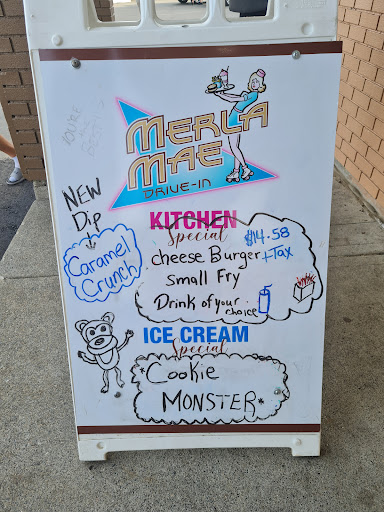 MERLA
MAE
DRIVE-IN
NEW
Dip
Caramel
Crunch
KITCHEN
Special
$14.58
+Tax
cheese Burger
small Fry
Drink of your
choice
ICE CREAM
Special
*Cookie
MONSTER*